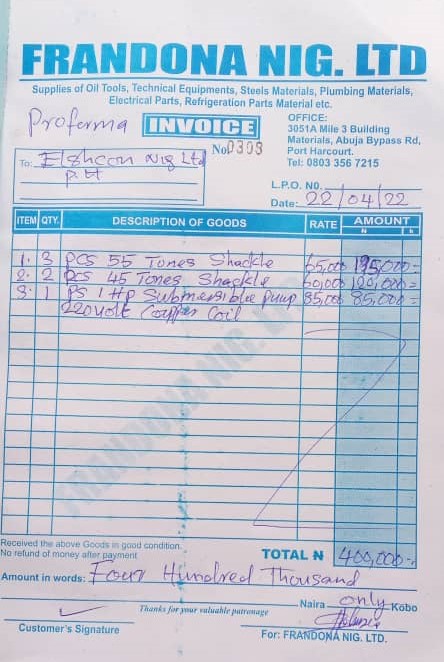 FRANDONA NIG. LTD
Supplies of Oil Tools, Technical Equipments, Steels Materials, Plumbing Materials,
Electrical Parts, Refrigeration Parts Material etc.
Proforma INVOICE
No 0398
OFFICE:
3051A Mile 3 Building
Materials, Abuja Bypass Rd,
Port Harcourt.
Tel: 0803 356 7215
To: Elshcon Nig Ltd
P.H
L.P.O. NO.
Date: 22/04/22
ITEM QTY. DESCRIPTION OF GOODS RATE AMOUNT
N k
1. 3 pcs 55 Tones Shackle 65,000 195,000=
2. 2 pcs 45 Tones Shackle 60,000 120,000=
3. 1 ps 1 Hp Submersible pump 85,000 85,000=
220 volt Copper Coil
FRANDONA NIG. LTD
Received the above Goods in good condition.
No refund of money after payment
TOTAL N 400,000-
Amount in words: Four Hundred Thousand
Naira only Kobo
Thanks for your valuable patronage
Customer's Signature
For: FRANDONA NIG. LTD.